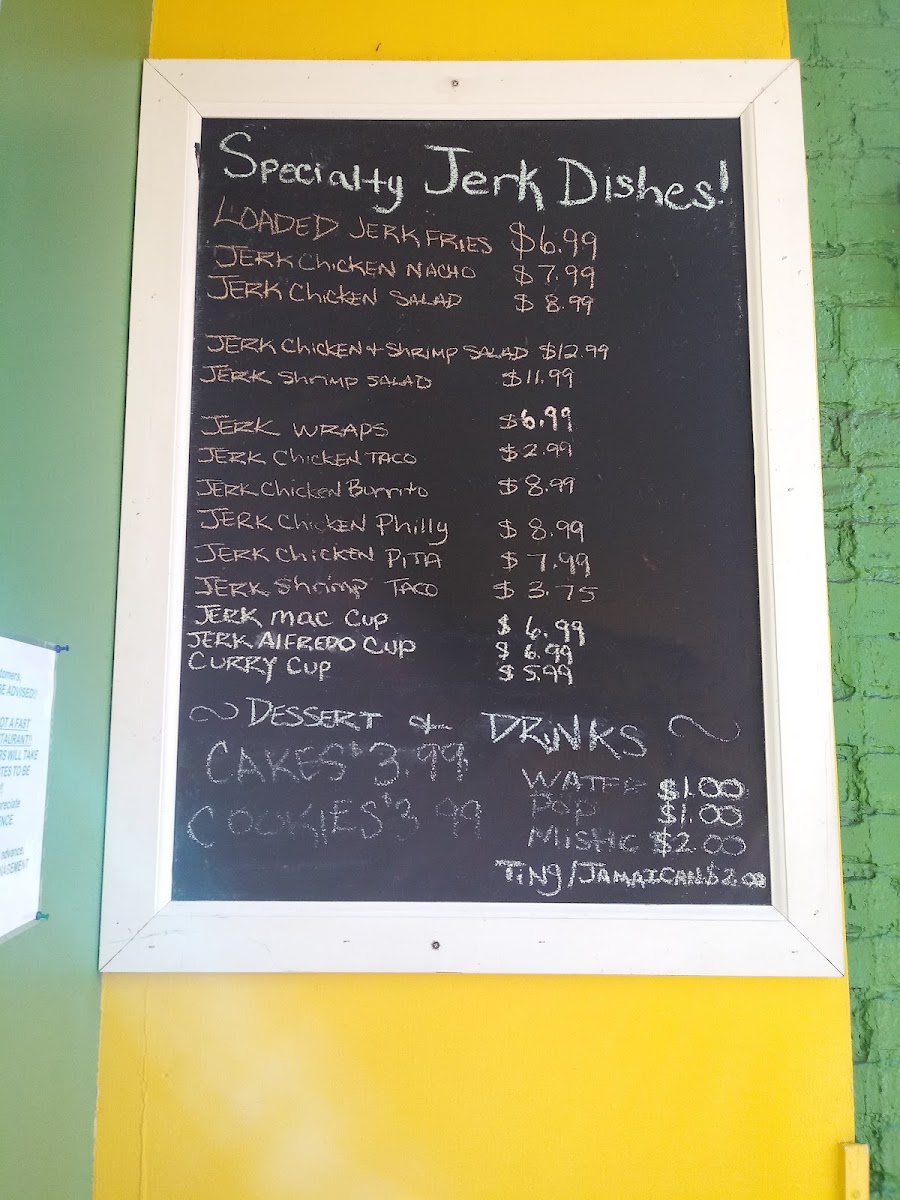 Specialty Jerk Dishes!
LOADED JERK FRIES $6.99
JERK Chicken NACHO $7.99
JERK Chicken SALAD $8.99
JERK Chicken + Shrimp SALAD $12.99
JERK Shrimp SALAD $11.99
JERK WRAPS $6.99
JERK Chicken TACO $2.99
JERK Chicken Burrito $8.99
JERK Chicken Philly $8.99
JERK Chicken PITA $7.99
JERK Shrimp TACO $3.75
JERK mac Cup $6.99
JERK AlFREDO Cup $6.99
CURRY Cup $5.99
DESSERT & DRiNKS
CAKES $3.99
COOKIES $3.99
WATER $1.00
POP $1.00
MiStic $2.00
TiNg/JAMAICAN $2.00
tomers,
BE ADVISED!!
NOT A FAST
TAURANT!!
RS WILL TAKE
TES TO BE
preciate
NCE
advance,
NAGEMENT